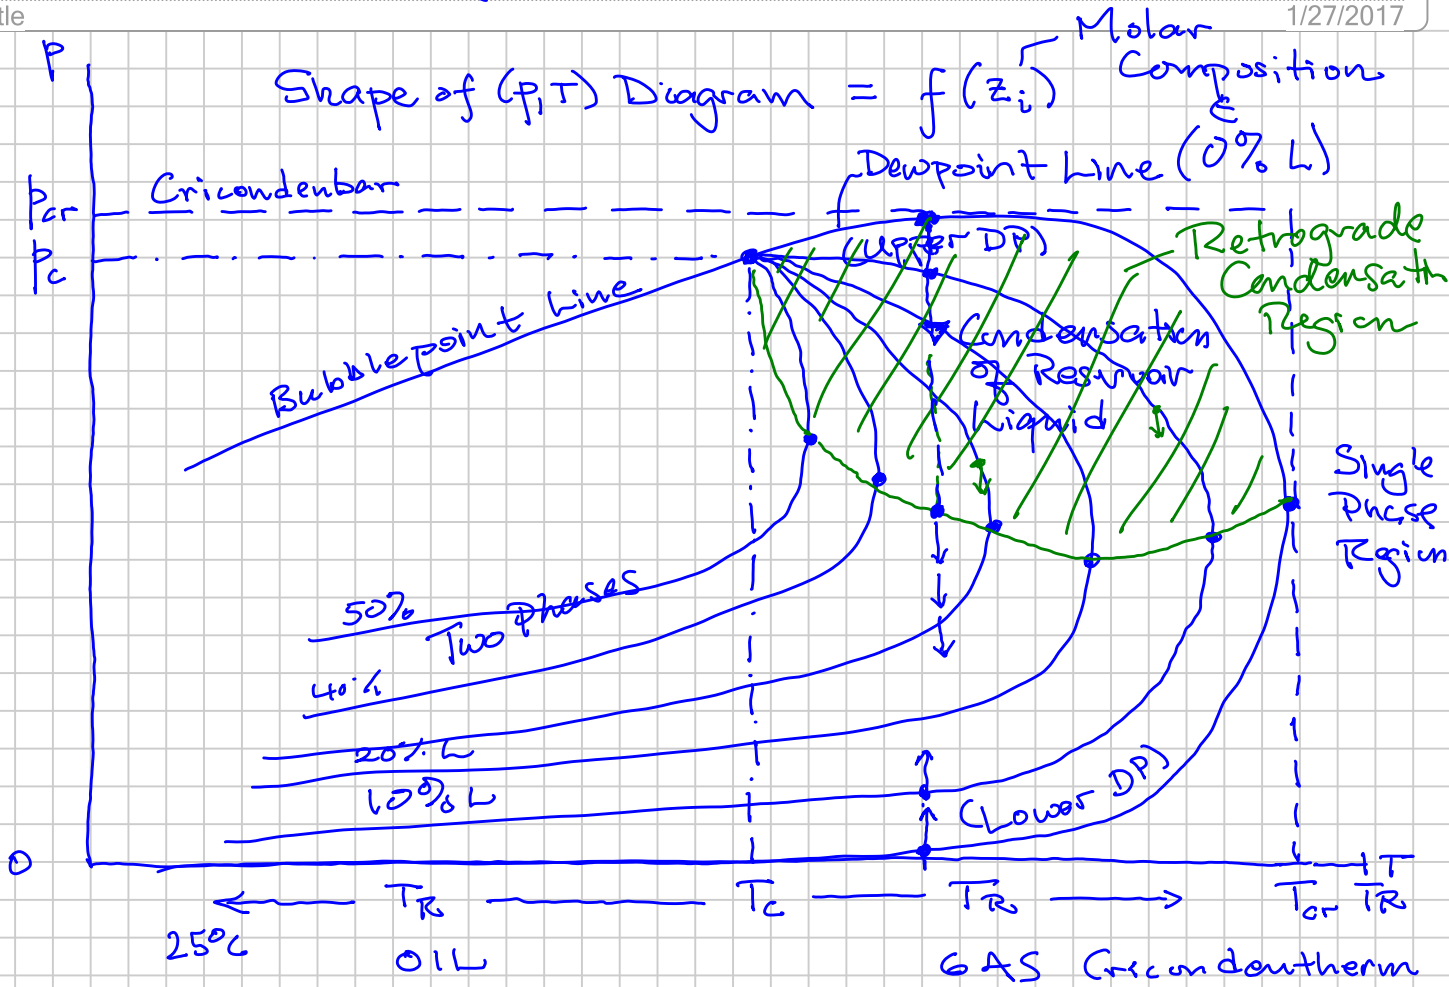 tle
1/27/2017
p
Shape of (p,T) Diagram = f(zi)
Molar
Composition
Dewpoint Line (0% L)
Pcr
Cricondenbar
Pc
(Upper DP)
Retrograde
Condensatn
Region
Bubblepoint Line
Condensation
of Reservoir
Liquid
Single
Phase
Region
50%
Two phases
40%
20% L
10% L
(Lower DP)
0
T
TR
Tc
TR
Tcr
TR
25°C
OIL
GAS
Cricondentherm